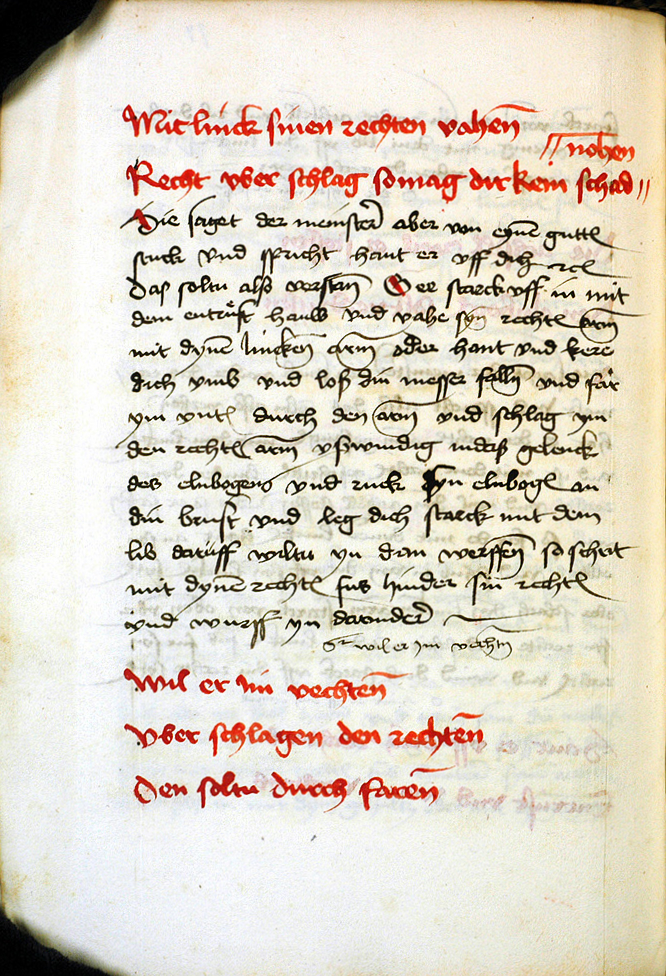 Mit linck sinen rechten vahen̄
// nohen
Recht vber schlag so mag dir kein schad //
Hie saget der meinster aber von eynē guttē
stuck vnd spricht haut er vff dich etc
das soltu alß verstan̄ Gee starck vff in mit
dem entrüst hauw vnd vahe syn̄ rechtē arm
mit dynē lincken̄ arm oder hant vnd kere
dich vmb vnd loß din messer fallē vnd far
ym vntē durch den arm vnd schlag ym
den rechtē arm vßwindig in daß gelenck
des elnbogens vnd ruck syn elnbogē an
din brust vnd leg dich starck mit dem
lib daruff wiltu yn dan werffen̄ so schrit
mit dynē rechtē fus hinder sin rechtē
vnd wurff yn darvnder
wil er im vechtn̄
Wil er im vechten̄
Vber schlagen den rechten̄
Den soltu durch faren̄